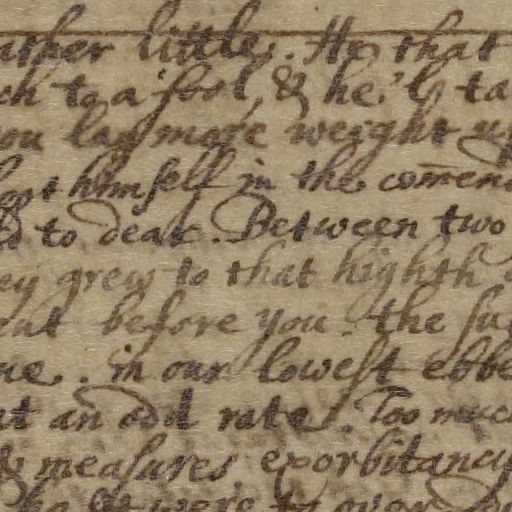 ather little. He that
ch to a fool, & he'l ta
ou lay more weight up
himself in the com̄end
d to deare. Between two
ey grew to that highth
ent before you. the su
ue. in our lowest ebbe
at an odd rate. Too muc
& measures. exorbitancy
it were to over